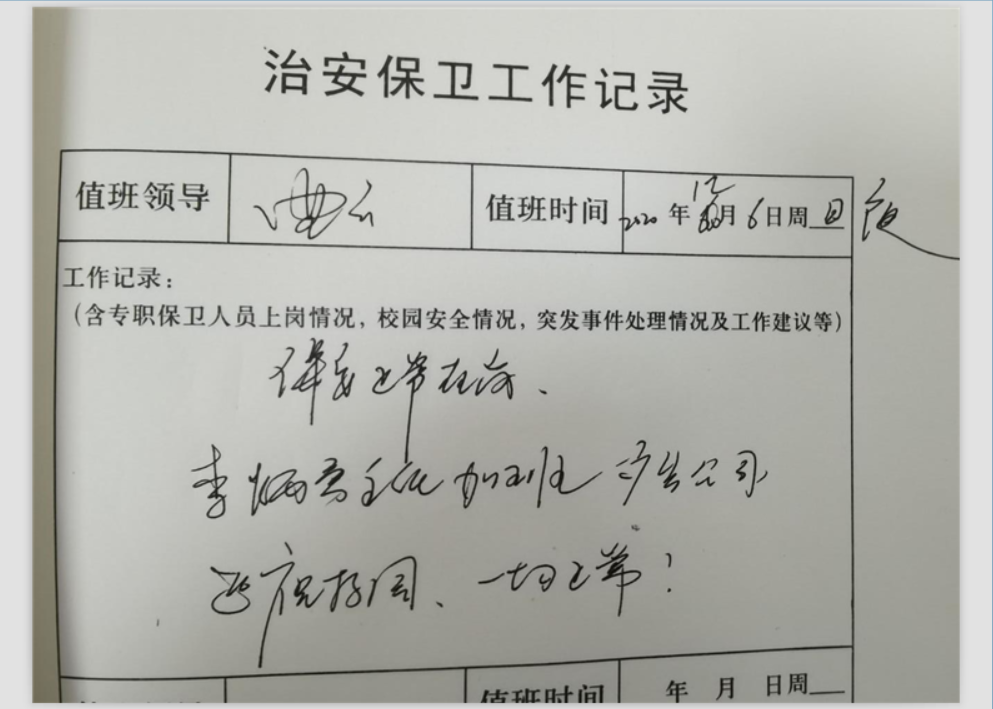 治安保卫工作记录
值班领导 值班时间 2020年12月6日周日
工作记录：
（含专职保卫人员上岗情况，校园安全情况，突发事件处理情况及工作建议等）
保安正常在岗、
李炳 主任加班 广告公司
一切正常！
值班时间 年 月 日周